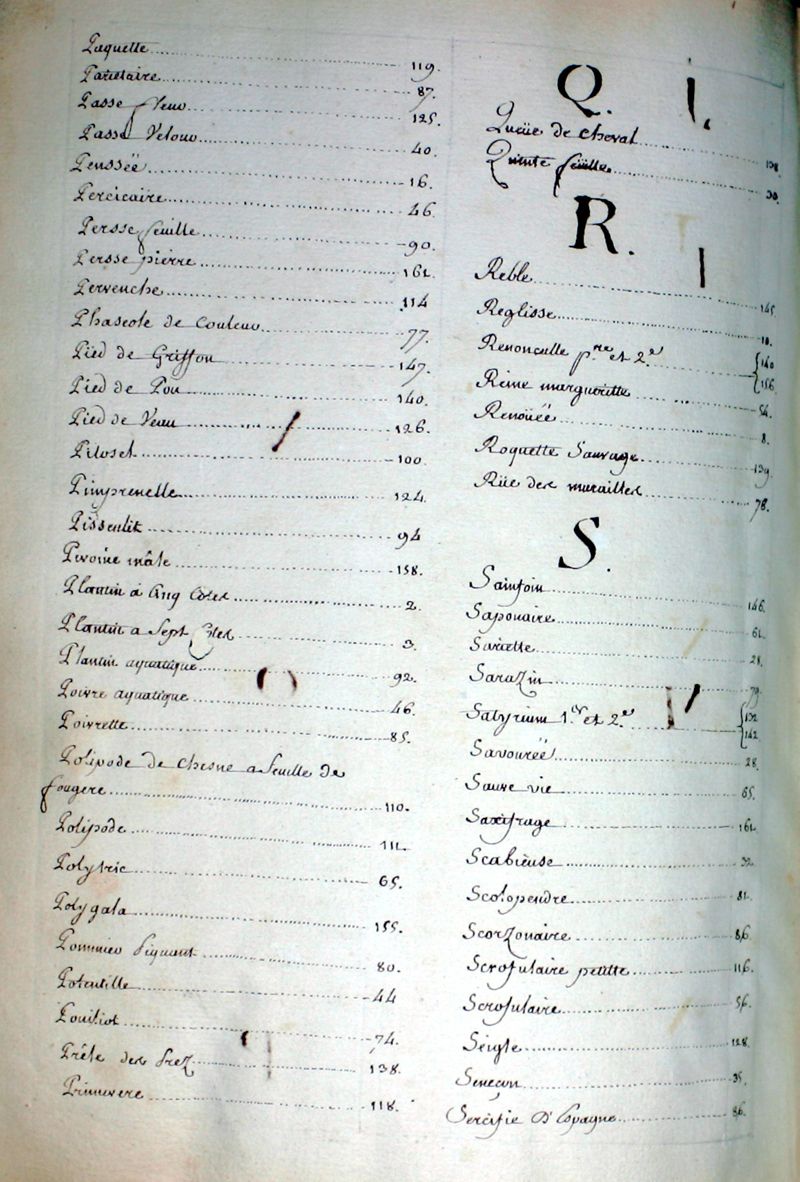 Paquette 119.
Parietaire 87.
Passe Venv 125.
Passe Velouv 40.
Penssëe 16.
Percicaire 46.
Persse feuille 90.
Persse pierre 161.
Pervenche 114
Phaseole de Couleuv 77.
Pied de Griffon 147.
Pied de Pou 140.
Pied de Veau 126.
Piloset 100
Pimprenelle 124.
Pissenlit 94
Pivoine mâle 158.
Plantin a Cinq Cotes 2.
Plantin a Sept Cotes 3.
Plantin aquatique 92.
Poivre aquatique 46.
Poivrette 85.
Polipode de Chesne a feuille de
fougere 110.
Polipode 111.
Polytric 65.
Poly gala 155.
Pommiev Piquant 80.
Potentille 44
Pouiliot 74.
Prêle des Prez 138.
Primevere 118.
Q.
Queüe de Cheval 138
Quinte feüille 30.
R.
Reble 145.
Reglisse 10.
Renonculle p.re et 2.e 140 156.
Reine margueritte 54.
Renoüée 8.
Roquette Sauvage 139
Rüe des murailles 78.
S.
Sainfoin 146.
Saponaire 61.
Sariette 28.
Sarazin 79.
Satyrium 1.er et 2.e 132 142.
Savouréë 28.
Sauve vie 65.
Saxifrage 161.
Scabieuse 32.
Scolopendre 81.
Scorzonaire 86.
Scrofulaire petitte 116.
Scrofulaire 56.
Seigle 128.
Seneçon 35.
Sercifie D'Espagne 86.